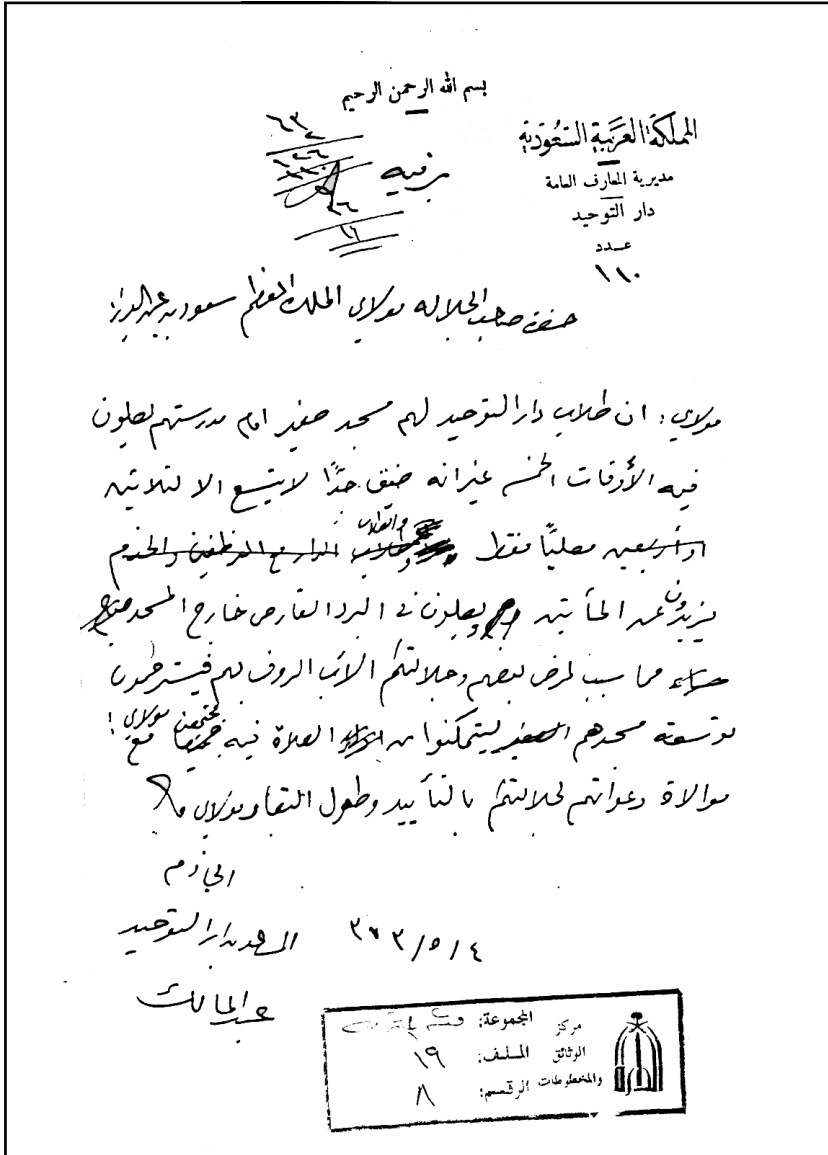 بسم الله الرحمن الرحيم
المملكة العربية السعودية
مديرية المعارف العامة
دار التوحيد
عدد
١١٠
برقيه
٦٣
٢٦
١٦
حضرة صاحب الجلاله مولاي الملك المعظم سعود بن عبد العزيز
مولاي: ان طلاب دار التوحيد لهم مسجد صغير امام مدرستهم يصلون
فيه الأوقات الخمسه غير انه ضيق جدًا لا يتسع الا لثلاثين
او أربعين مصليًا فقط والطلاب والخدم
يزيدون عن المأتين ويصلون في البرد القارص خارج المسجد
مما سبب لمرض بعضهم وجلالتكم الأب الروف لهم فيسترحمون
توسعة مسجدهم الصغير ليتمكنوا من الصلاة فيه مجتمعين مع مولاي!
موالاة دعواتهم لجلالتكم بالتأييد وطول البقا مولاي
الخادم
٤/٥/٣٧٣
بدار التوحيد
عبد المالك
مركز الوثائق والمخطوطات
المجموعة:
الملف: ١٩
الرقم: ٨